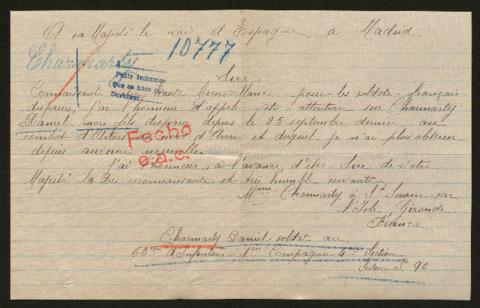 A sa Majesté le roi d'Espagne à Madrid
10777
Charmarty
Petit informer
Sire
Connaissant votre haute bienveillance pour les soldats français
disparus, j'ai l'honneur d'appeler votre attention sur Charmarty
Daniel mon fils disparu depuis le 25 septembre dernier au
combat d' et duquel je n'ai plus obtenu
depuis aucune nouvelle.
Fecho
J'ai l'honneur, à l'avance, d'être Sire de votre
Majesté la très reconnaissante et très humble servante
Mme Charmarty à St sur
l'Isle Gironde
France
Charmarty Daniel soldat au
63e d'Infanterie 1re Compagnie 4e Section
Secteur P. 90